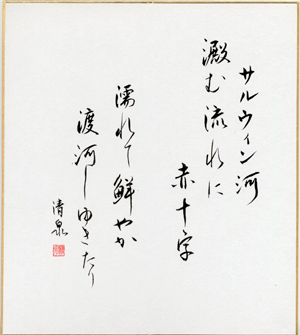 サルウィン河
澱む流れに
赤十字
濡れて鮮やか
渡河しゆきたり
清泉